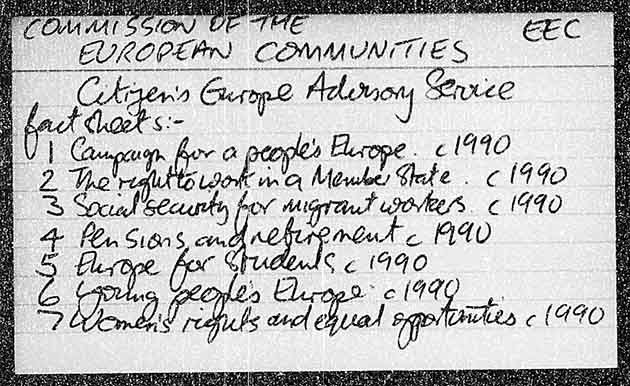 COMMISSION OF THE EEC
EUROPEAN COMMUNITIES
Citizen's Europe Advisory Service
fact sheets:-
1 Campaign for a people's Europe. c 1990
2 The right to work in a Member State. c 1990
3 Social security for migrant workers. c 1990
4 Pensions and retirement c 1990
5 Europe for Students c 1990
6 Young people's Europe. c 1990
7 Women's rights and equal opportunities c 1990